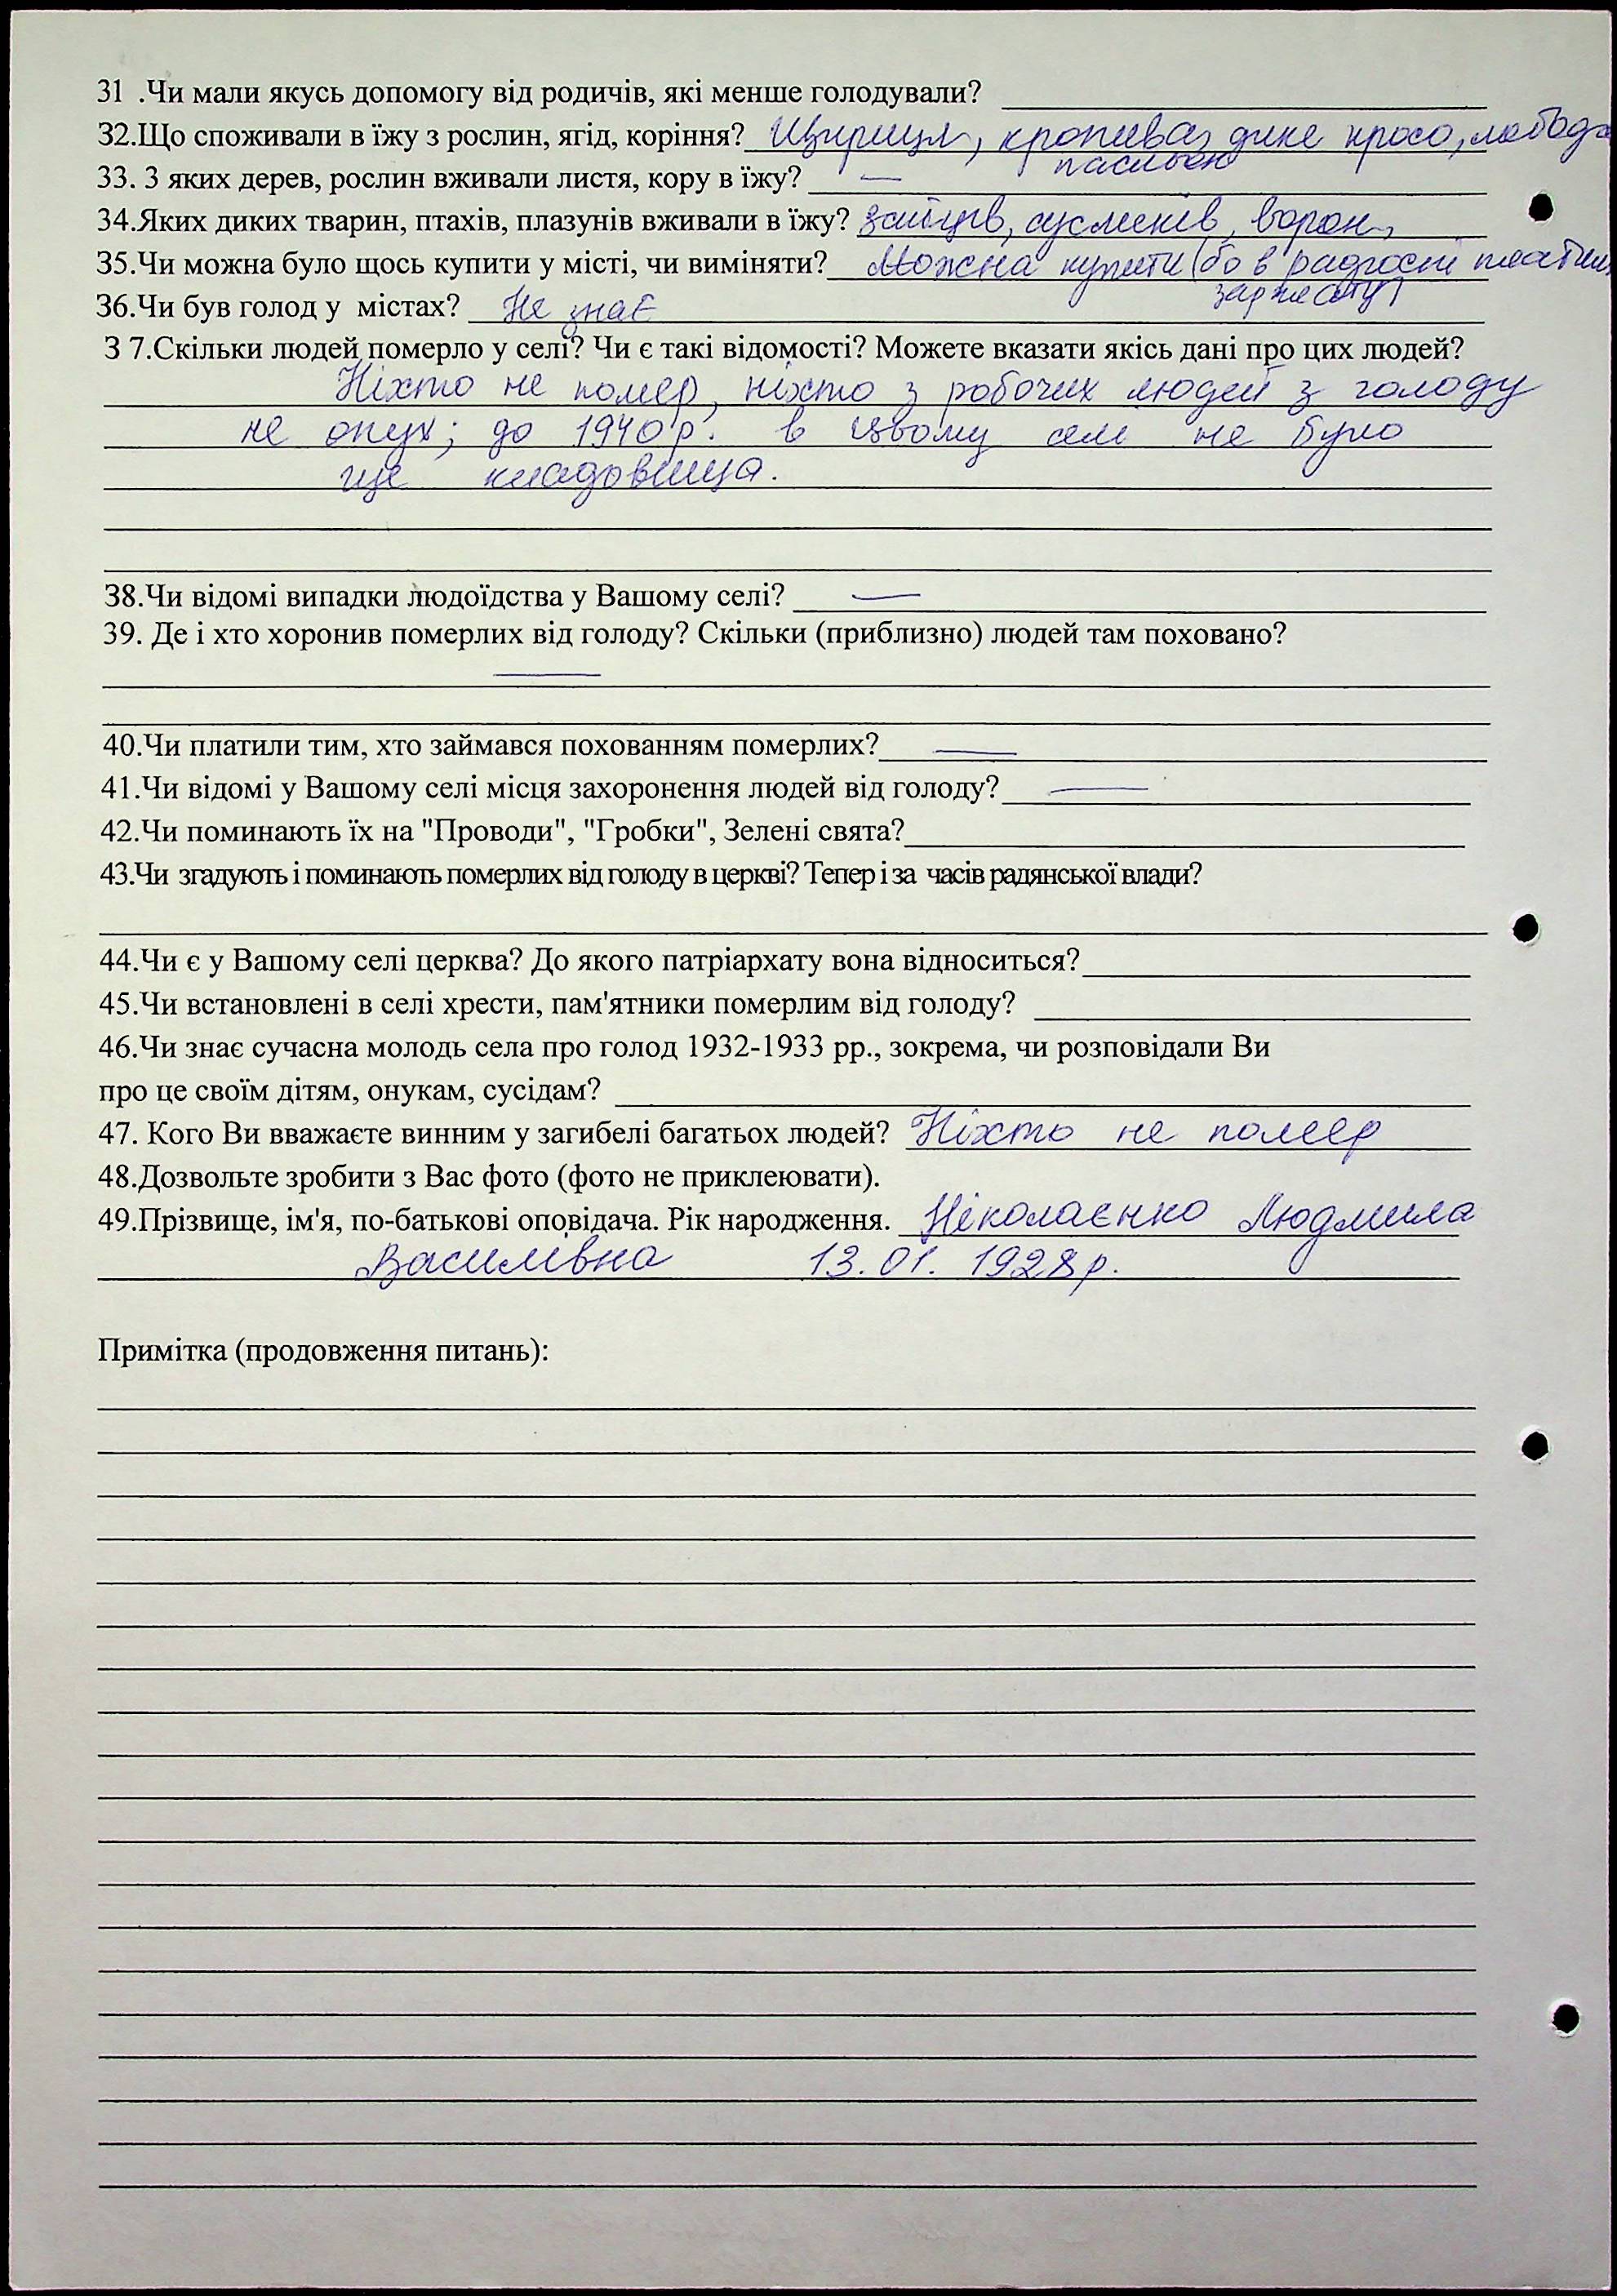 31 .Чи мали якусь допомогу від родичів, які менше голодували?
32.Що споживали в їжу з рослин, ягід, коріння? Щириця, кропива, дике просо, лобода
пасльон
33. З яких дерев, рослин вживали листя, кору в їжу? —
34.Яких диких тварин, птахів, плазунів вживали в їжу? зайців, сусликів, ворон,
35.Чи можна було щось купити у місті, чи виміняти? Можна купити (бо в радгоспі платили
зарплату)
36.Чи був голод у містах? Не знає
3 7.Скільки людей померло у селі? Чи є такі відомості? Можете вказати якісь дані про цих людей?
Ніхто не помер, ніхто з робочих людей з голоду
не опух; до 1940 р. в цьому селі не було
ще кладовища.
38.Чи відомі випадки людоїдства у Вашому селі? —
39. Де і хто хоронив померлих від голоду? Скільки (приблизно) людей там поховано?
—
40.Чи платили тим, хто займався похованням померлих? —
41.Чи відомі у Вашому селі місця захоронення людей від голоду? —
42.Чи поминають їх на "Проводи", "Гробки", Зелені свята?
43.Чи згадують і поминають померлих від голоду в церкві? Тепер і за часів радянської влади?
44.Чи є у Вашому селі церква? До якого патріархату вона відноситься?
45.Чи встановлені в селі хрести, пам'ятники померлим від голоду?
46.Чи знає сучасна молодь села про голод 1932-1933 рр., зокрема, чи розповідали Ви
про це своїм дітям, онукам, сусідам?
47. Кого Ви вважаєте винним у загибелі багатьох людей? Ніхто не помер
48.Дозвольте зробити з Вас фото (фото не приклеювати).
49.Прізвище, ім'я, по-батькові оповідача. Рік народження. Ніколаєнко Людмила
Василівна 13.01.1928р.
Примітка (продовження питань):